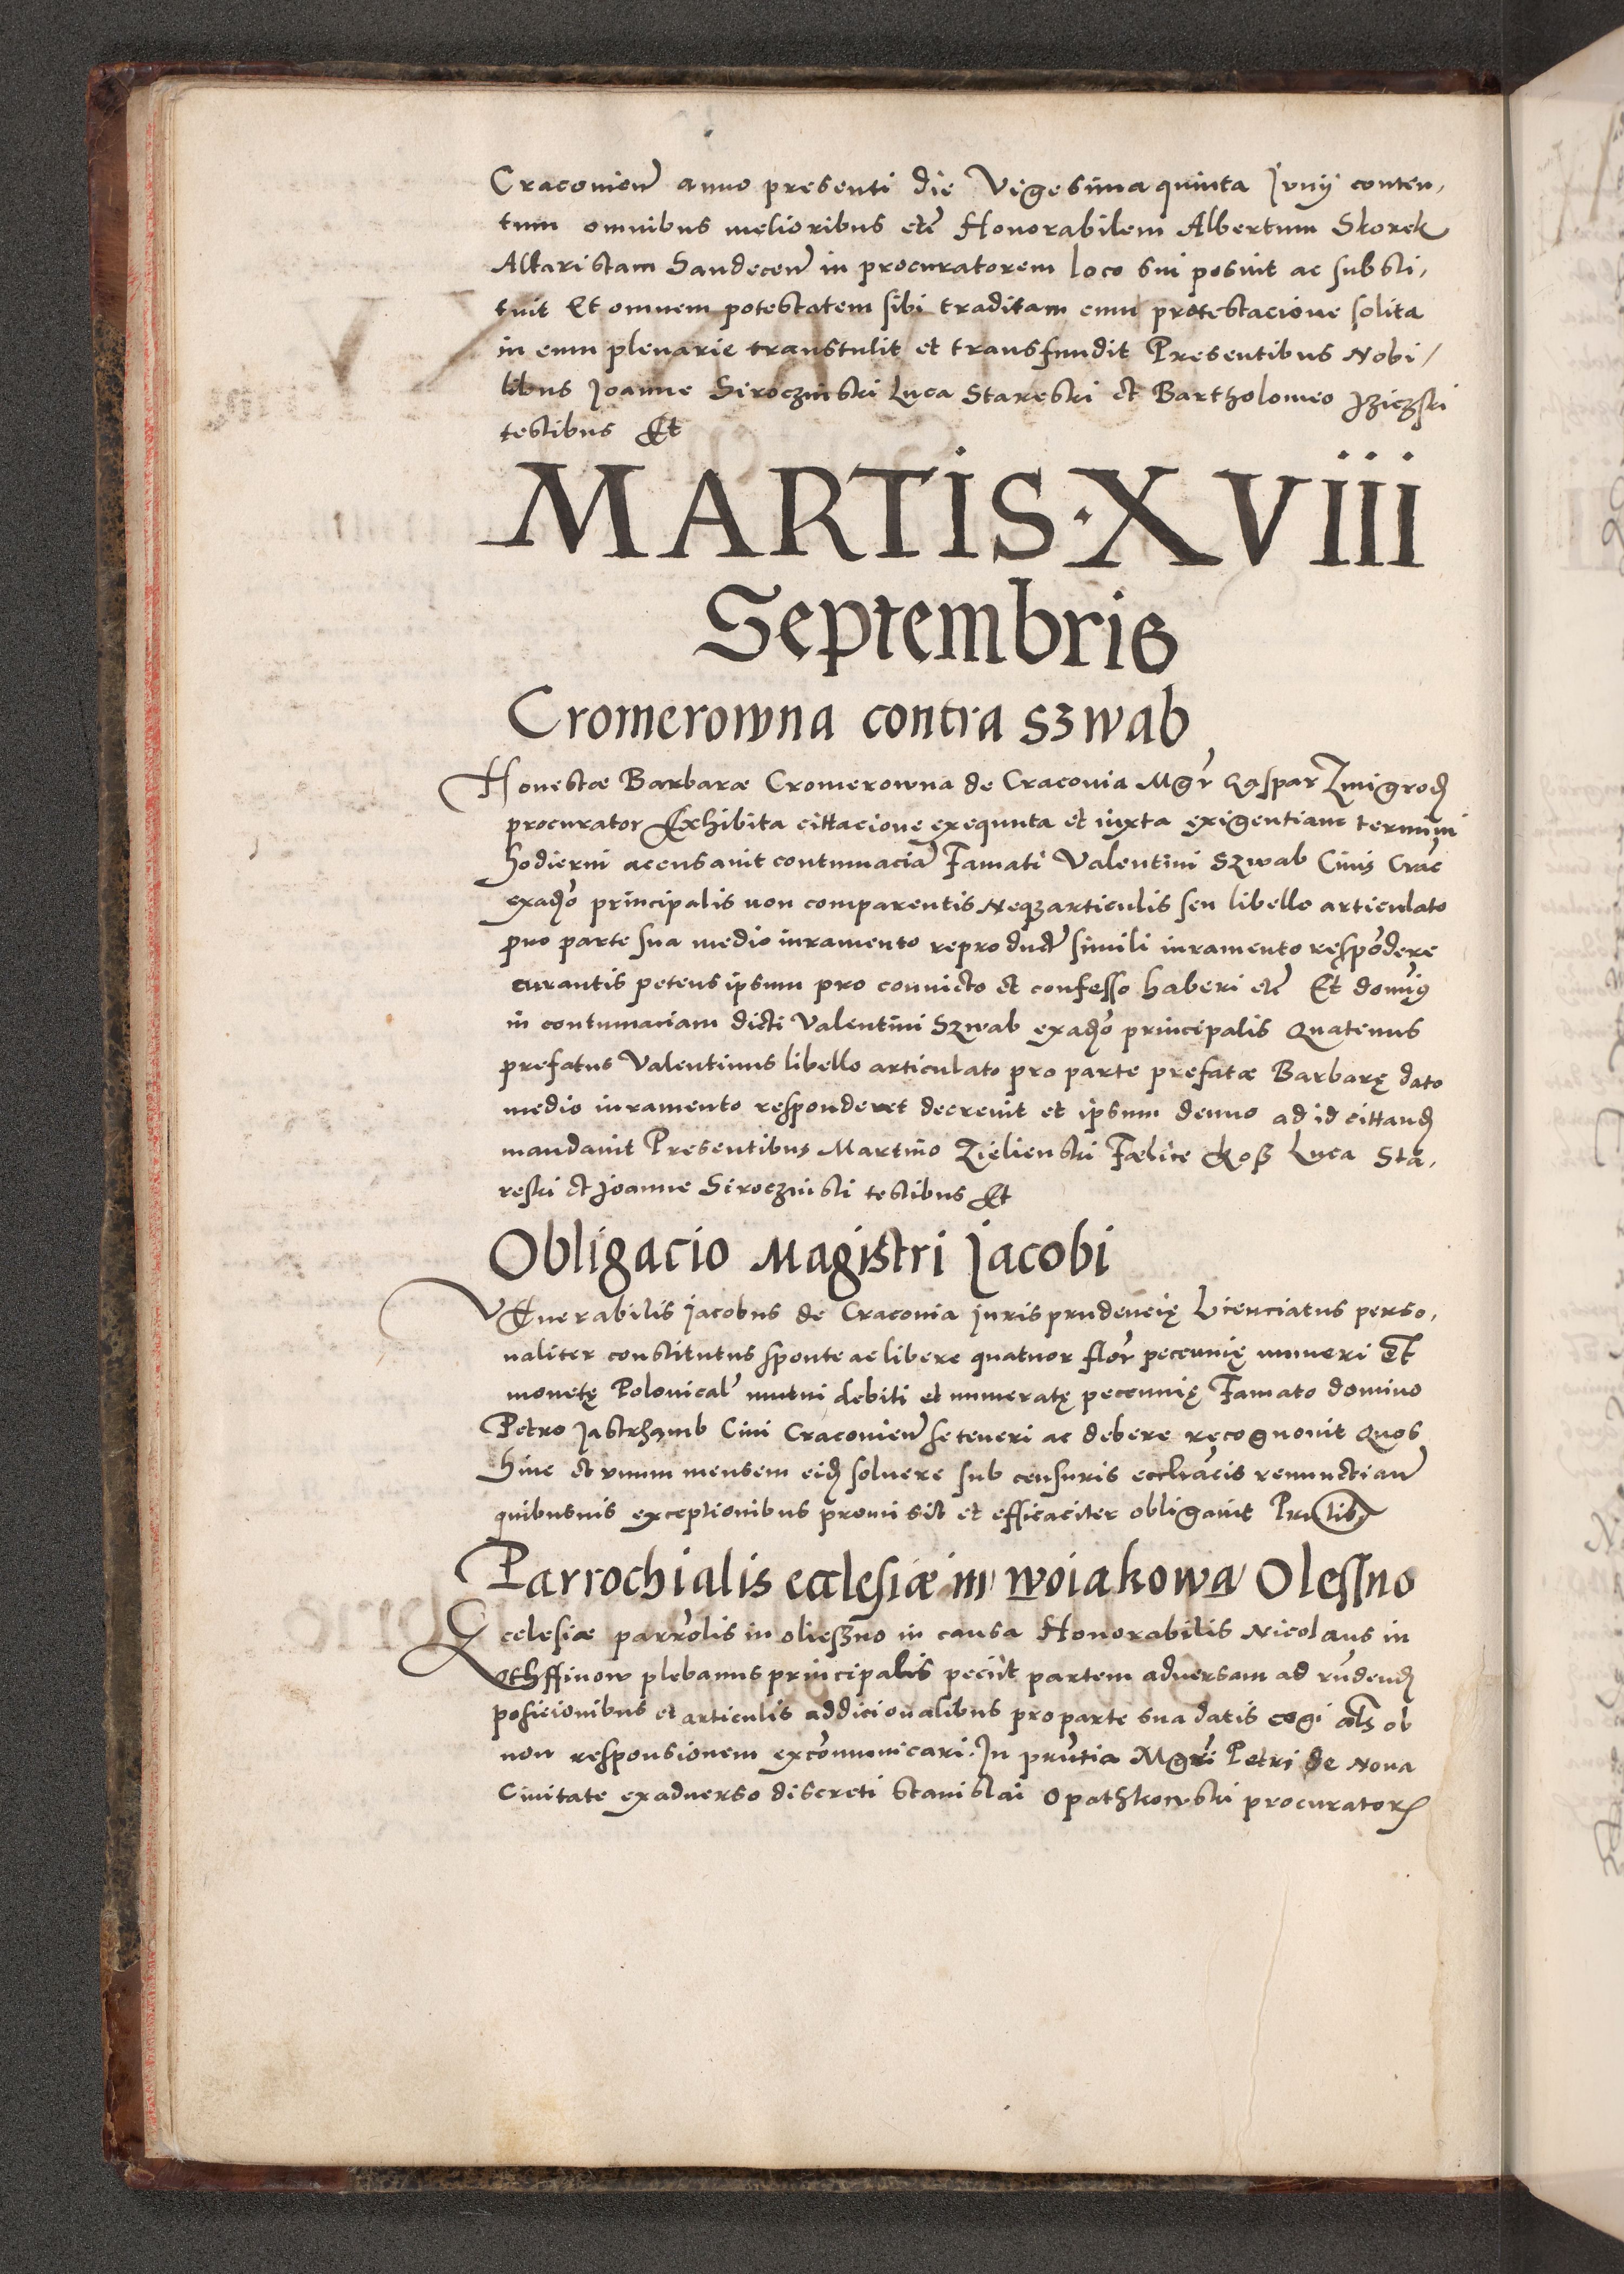 Craconien̄ anno presenti die Vigesima quinta Junij conten,
tum omnibus melioribus etc̄ Honorabilem Albertum Skorek
Altaristam Sandecen̄ in procuratorem loco sui posuit ac substi,
tuit Et omnem potestatem sibi traditam cum protestacione solita
in eum plenarie transtulit et transfundit Presentibus Nobi/
libus Joanne Siroczinski Luca Stareski et Bartholomeo
testibus Et
MARTIS·XViii
Septembris
Cromerowna contra szwab
Honestæ Barbaræ Cromerowna de Craconia Mgr̄ Caspar Zmigrod
procurator Exhibita cittacione exequuta et iuxta exigentiam termini
hodierni accusauit contumaciā Famati Valentini Szwab Ciuis Crac̄
exadūo principalis non comparentis Neqz articulis seu libello articulato
pro parte sua medio iuramento reproduct̄ simili iuramento respōdere
curantis petens ipsum pro conuicto et confesso haberi etc̄ Et domin9
in contumaciam dicti Valentini Szwab exadūo principalis Quatenus
prefatus Valentinus libello articulato pro parte prefatæ Barbarę dato
medio iuramento responderet decreuit et ipsum denuo ad id cittand
mandauit Presentibus Martino Zielienski Fælice Koß Luca Sta,
reski et Joanne Siroczinski testibus Et
Obligacio Magistri Jacobi
VEnerabilis Jacobus de Craconia Jurisprudencię Licenciatus perso,
naliter constitutus sponte ac libere quatuor flor̄ peccunię numeri Et
monetę Polonical̄ mutui debiti et numeratę peccunię Famato domino
Petro Jastrhąmb Ciui Craconien̄ se teneri ac debere recognouit Quos
hinc et vnum mensem eid soluere sub censuris eccl̄iacis renunctian̄
quibusuis exceptionibus promisit et efficaciter obligauit
Parrochialis ecclesiæ in woiakowa Olessno
Ecclesiæ parrōlis in olieszno in causa Honorabilis Nicolaus in
plebanus principalis peciit partem aduersam ad r̄ndend
posicionibus et articulis addicionalibus pro parte sua datis cogi al̄s ob
non responsionem excōmunicari. In prn̄tia Mgr̄i Petri de Noua
Ciuitate exaduerso discreti Stanislai Opathkowski procurator